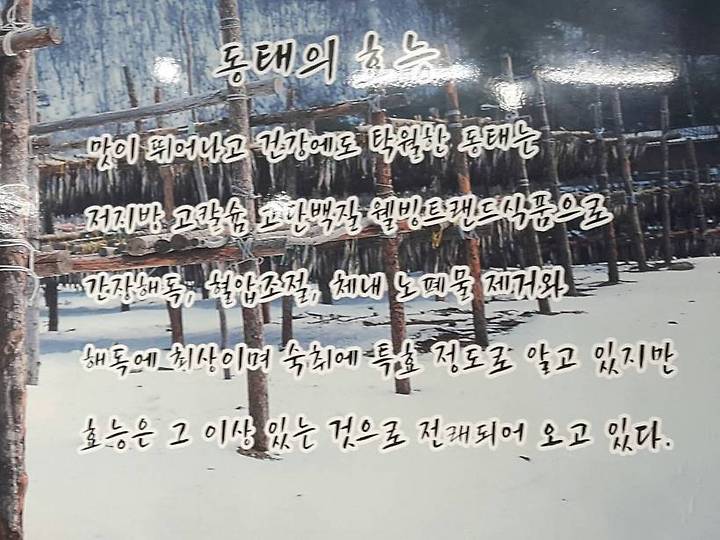 동태의 효능
맛이 뛰어나고 건강에도 탁월한 동태는
저지방 고칼슘 고단백질 웰빙트랜드식품으로
간장해독, 혈압조절, 체내 노폐물 제거와
해독에 최상이며 숙취에 특효 정도로 알고 있지만
효능은 그 이상 있는 것으로 전래되어 오고 있다.